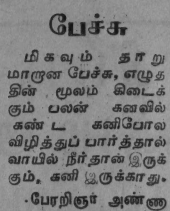 பேச்சு
மிகவும் தாறு
மாறான பேச்சு, எழுத்
தின் மூலம் கிடைக்
கும் பலன் கனவில்
கண்ட கனிபோல
விழித்துப் பார்த்தால்
வாயில் நீர்தான் இருக்
கும், கனி இருக்காது.
-பேரறிஞர் அண்ணா